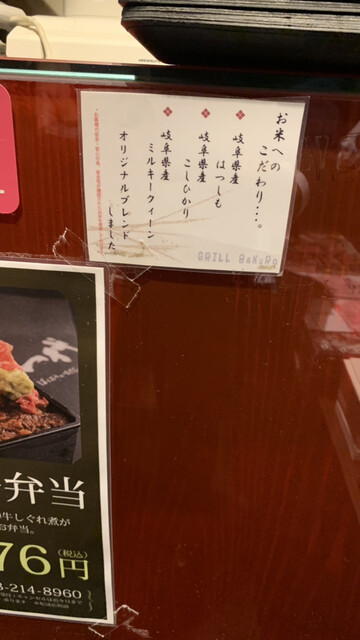 お米への
こだわり・・・。
岐阜県産
はつしも
岐阜県産
こしひかり
岐阜県産
ミルキークィーン
オリジナルブレンド
しました
GRILL BaKuRo
弁当
牛しぐれ煮が
お弁当。
76円
(税込)
-214-8960